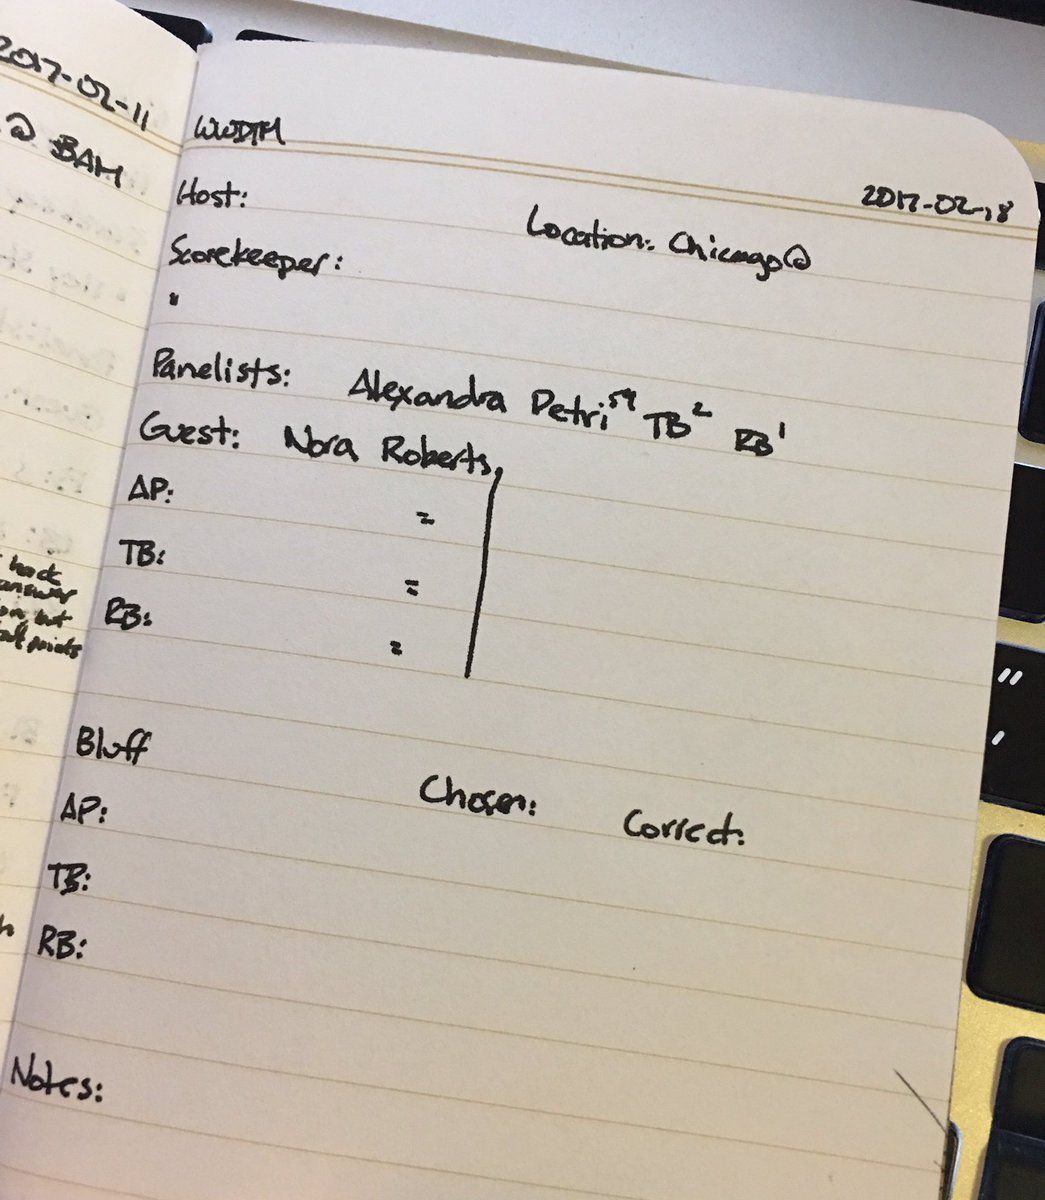 2017-02-11
@ BAM
hard
answer
but
points
WWDTM
2017-02-18
Host:
Location: Chicago@
Scorekeeper:
"
Panelists: Alexandra Petri TB² RB¹
Guest: Nora Roberts,
AP: =
TB: =
RB: =
Bluff
Chosen: Correct:
AP:
TB:
RB:
Notes:
"
'